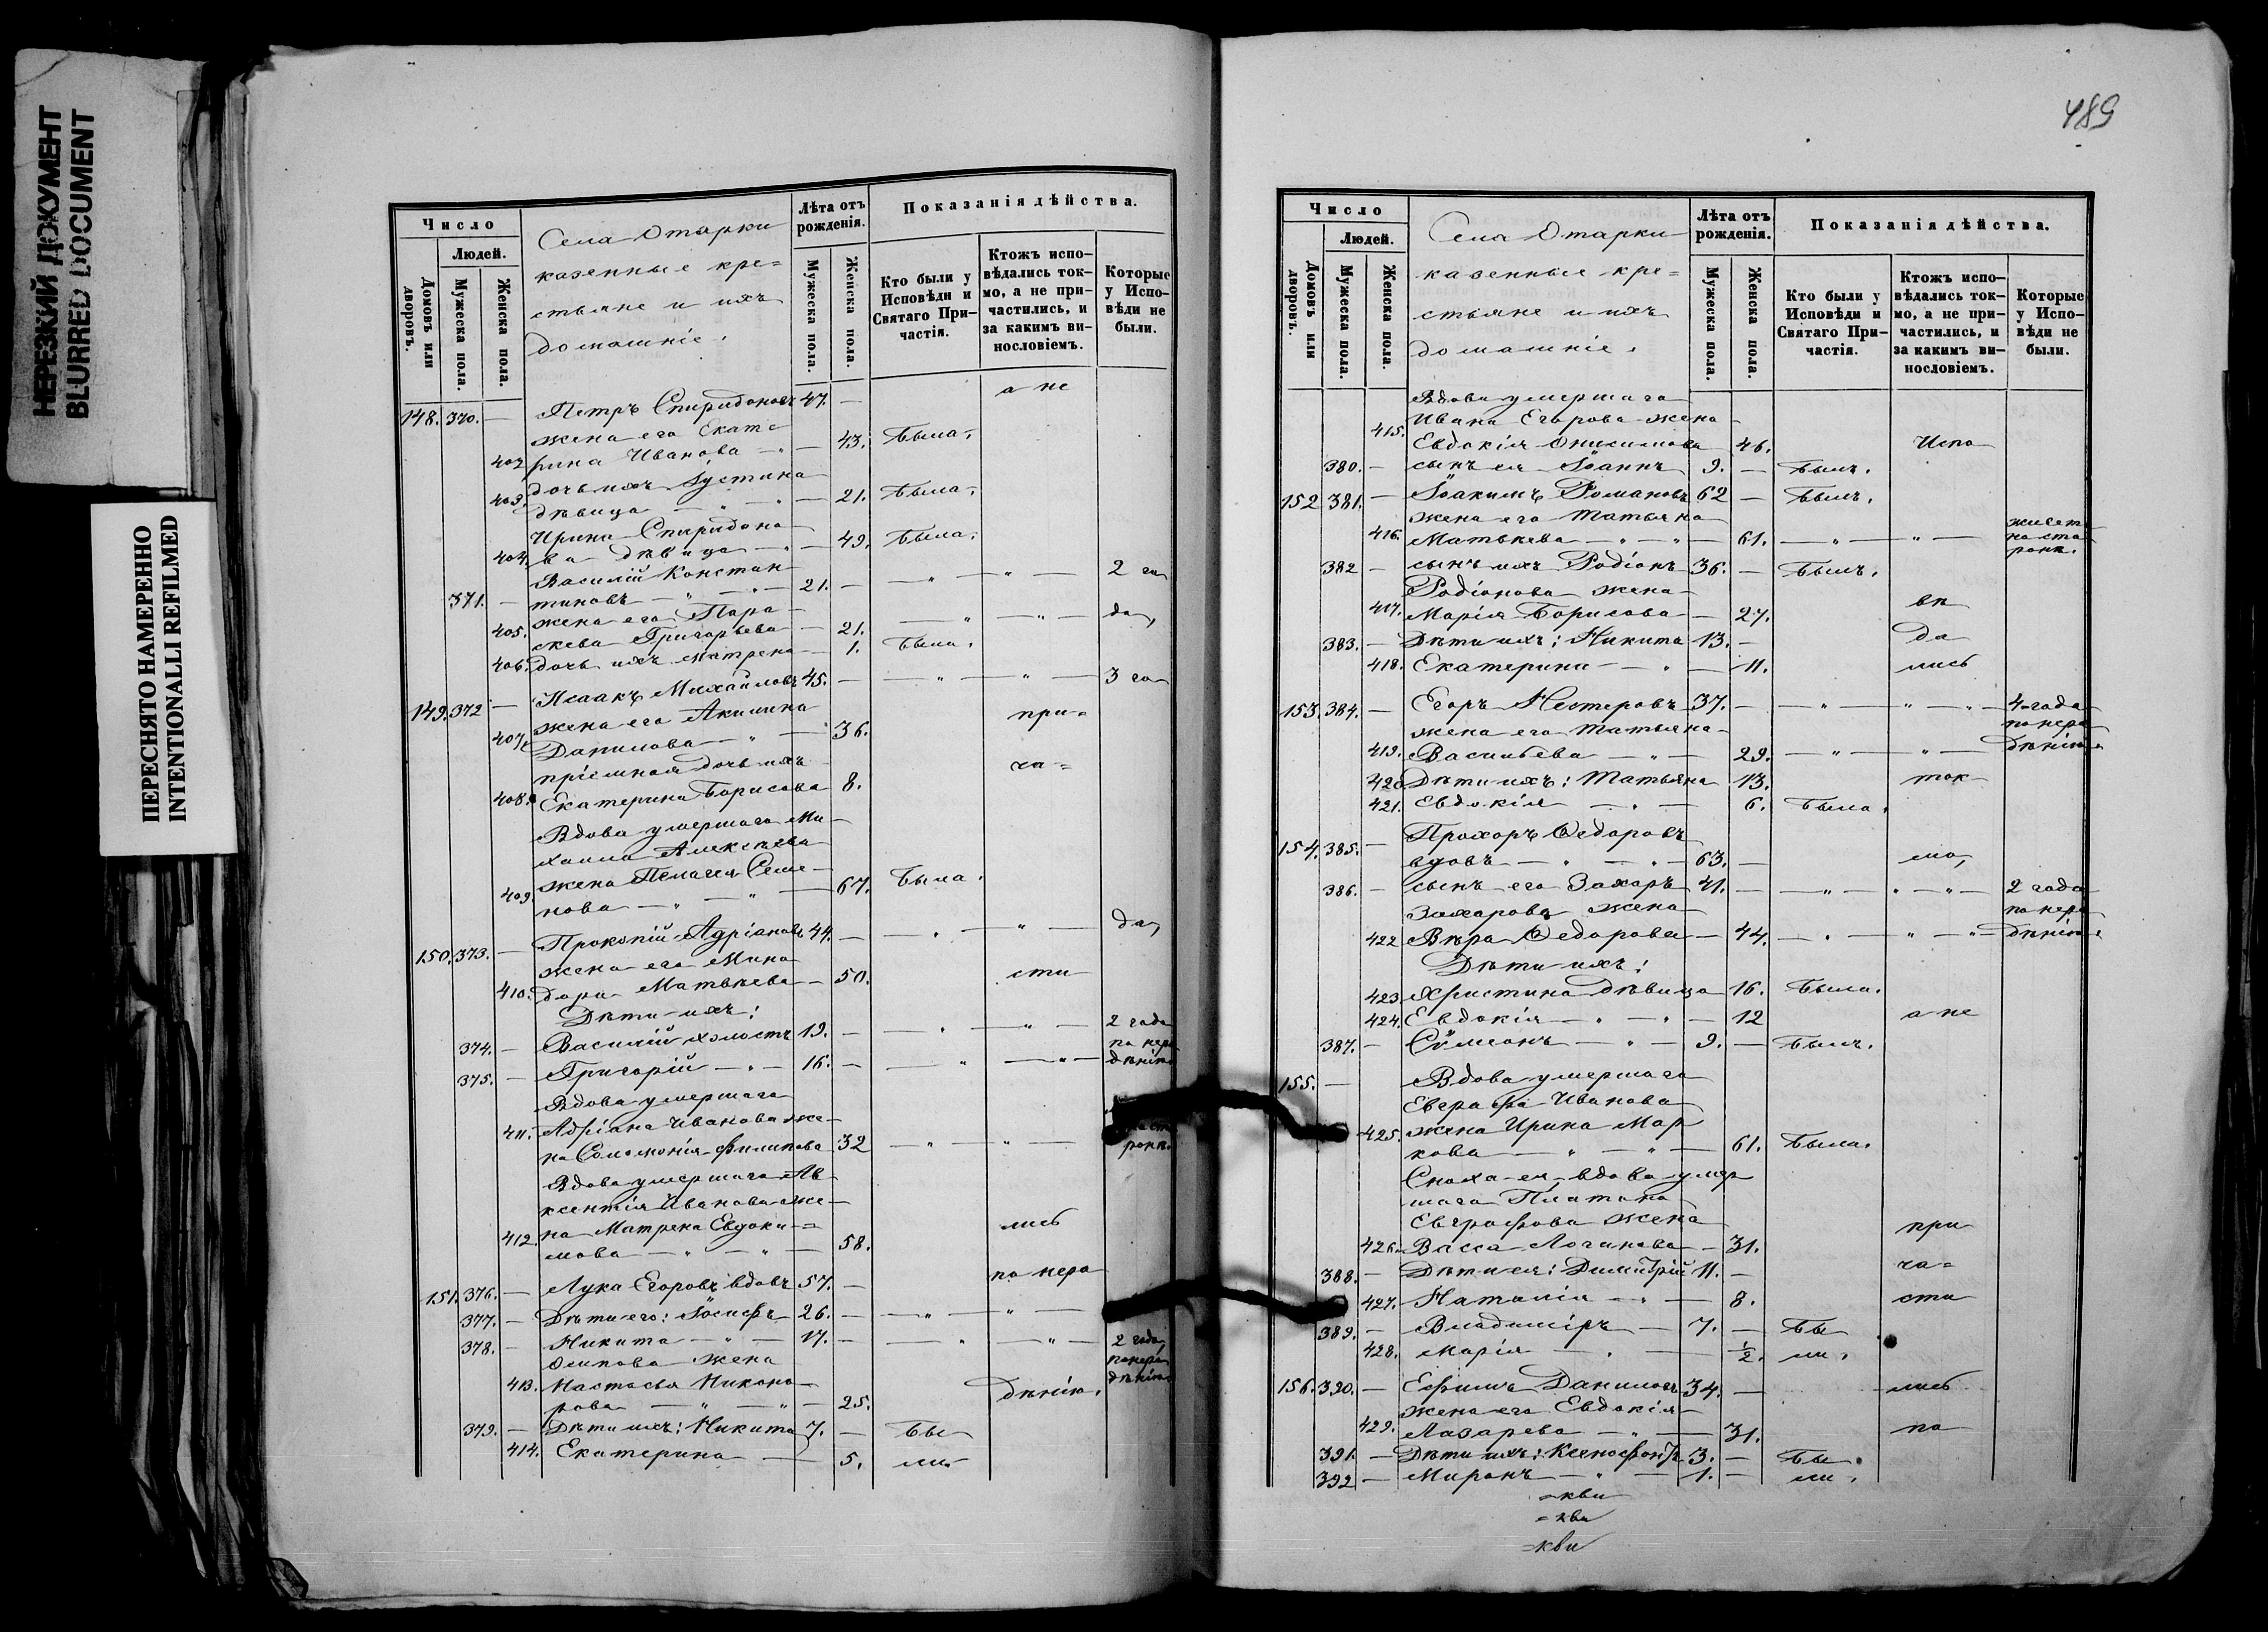 НЕРЕЗКИЙ ДОКУМЕНТ
BLURRED DOCUMENT
ПЕРЕСНЯТО НАМЕРЕННО
INTENTIONALLI REFILMED
Число
Людей.
Домовъ или дворовъ.
Мужеска пола.
Женска пола.
Села Отарки
казенные кре=
стьяне и ихъ
домашніе.
Лѣта отъ рожденія.
Мужеска пола.
Женска пола.
Показанія дѣйства.
Кто были у Исповѣди и Святаго Причастія.
Ктожъ исповѣдались токмо, а не причастились, и за какимъ винословіемъ.
Которые у Исповѣди не были.
а не
148. 370. — Петръ Спиридоновъ 47. —
жена его Екате
402 рина Иванова — 43. Была.
дочь ихъ Іустина
403. дѣвица — 21. Была.
Ирина Спиридоно
404. ва дѣвица — 49. Была.
Василій Констан
371. — тиновъ — 21. — 2 го
жена его Пара
405. скева Григорьева — 21. да,
406. дочь ихъ Матрена — 1. Была.
149. 372 — Исаакъ Михайловъ 45. — 3 го
жена его Акилина при=
407. Данилова — 36.
пріемная дочь ихъ ча=
408. Екатерина Борисова 8.
Вдова умершаго Ми
хаила Алексѣева
жена Пелагея Семе
409. нова — 67. Была.
150. 373. — Прокопій Адріановъ 44. — да,
жена его Мино
410. дора Матвѣева — 50. сти
Дѣти ихъ:
374. — Василій холостъ 19. — 2 года
по нера
375. — Григорій — 16. — дѣнію
Вдова умершаго
411. Адріана Иванова же
на Соломонія Филипова 32 ронѣ.
Вдова умершаго Ав
ксентія Иванова же
412. на Матрена Евдоки= лись
мова — 58.
по нера
151. 376. — Лука Егоровъ вдовъ 57. —
377. — Дѣти его: Іосифъ 26. —
378. — Никита — 17. — 2 года,
Осипова жена по нера
413. Настасья Никоно дѣнію. дѣнію
рова — 25.
379. — Дѣти ихъ: Никита 7. — Бы
414. Екатерина — 5. ли.
489
Число
Людей.
Домовъ или дворовъ.
Мужеска пола.
Женска пола.
Села Отарки
казенные кре=
стьяне и ихъ
домашніе.
Лѣта отъ рожденія.
Мужеска пола.
Женска пола.
Показанія дѣйства.
Кто были у Исповѣди и Святаго Причастія.
Ктожъ исповѣдались токмо, а не причастились, и за какимъ винословіемъ.
Которые у Исповѣди не были.
Вдова умершаго
Ивана Егорова жена
415. Евдокія Онисимова 46. Испо
380. — сынъ ея Іоаннъ 9. — Былъ.
152 381. — Іоакимъ Романовъ 62 — Былъ.
жена его Татьяна живет
416. Матвѣева — 61. — на сто
ронѣ.
382 — сынъ ихъ Родіонъ 36. — Былъ.
Родіонова жена
417. Марія Борисова — 27. вѣ
383. — Дѣти ихъ: Никита 13. — да
418. Екатерина — 11. лись
153. 384. — Егоръ Нестеровъ 37. — 4 года
жена его Татьяна по нера
419. Васильева — 29. — дѣнію
420 Дѣти ихъ: Татьяна 13. ток
421. Евдокія — 6. Была.
154. 385. — Прохоръ Ѳедоровъ
вдовъ — 63. — мо,
386. — сынъ его Захаръ 41. — 2 года
Захарова жена по нера
422 Вѣра Ѳедорова — 44. — дѣнію
Дѣти ихъ:
423. Христина дѣвица 16. Была.
424. Евдокія — 12 а не
387. — Сѵмеонъ — 9. — Былъ.
155. — Вдова умершаго
Евграфа Иванова
425. жена Ирина Мар
кова — 61. Была.
Сноха ея вдова умер
шаго Платона
Евграфова жена при
426. Васса Логинова — 31.
388. — Дѣти ея: Димитрій 11. — ча=
427. Наталія — 8. сти
389. — Владиміръ — 7. — Бы
428. Марія — 1/2. ли.
156. 390. — Ефимъ Даниловъ 34. — лись
жена его Евдокія
429. Лазарева — 31. по
391. — Дѣти ихъ: Ксенофонтъ 3. — Бы
392 — Миронъ — 1. — ли.
=кви
=кви
=кви